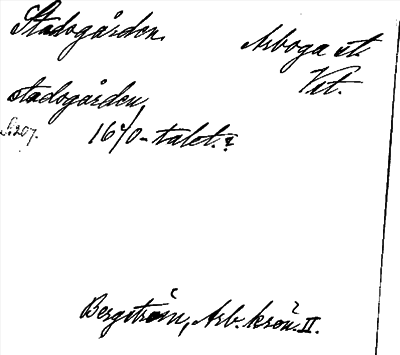 Stadsgården. Arboga st.
Vstm.
stadsgården,
S. 207. 1670-talet.
Bergström, Arb. krön. II.